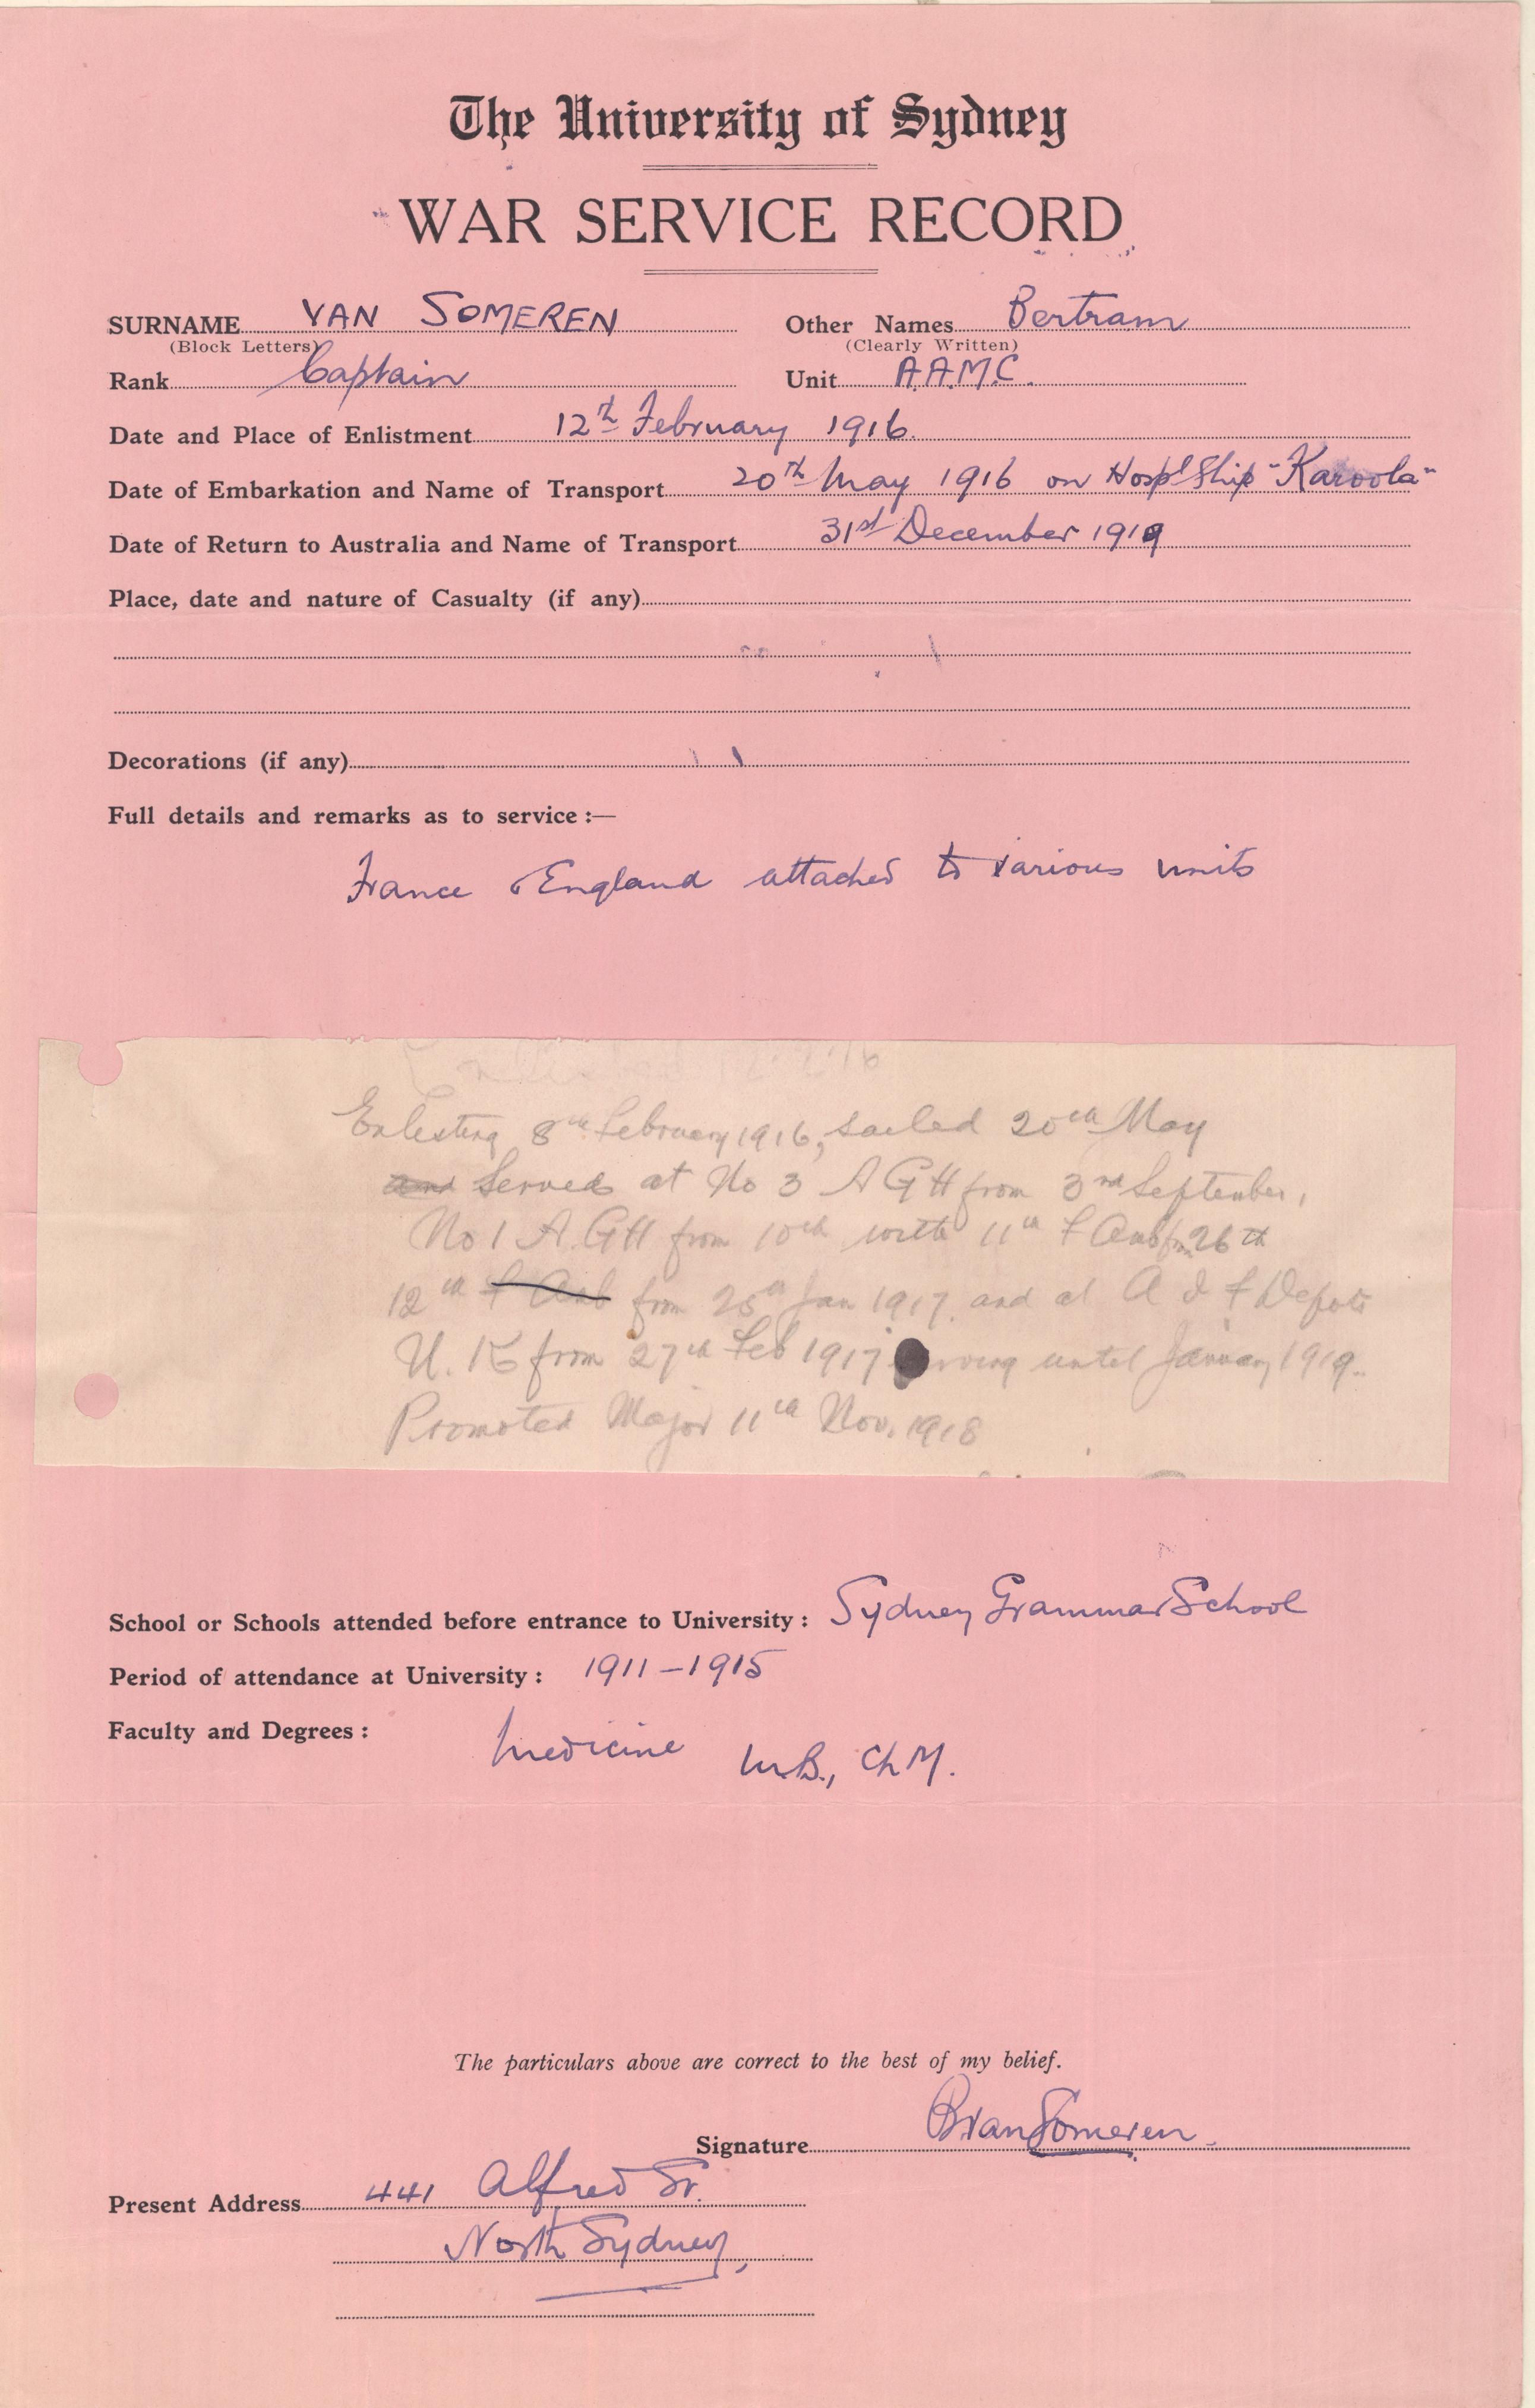 The University of Sydney
WAR SERVICE RECORD
SURNAME VAN SOMEREN Other Names Bertram
(Block Letters) (Clearly Written)
Rank Captain Unit A.A.M.C.
Date and Place of Enlistment 12th February 1916.
Date of Embarkation and Name of Transport 20th May 1916 on Hospl Ship "Karoola"
Date of Return to Australia and Name of Transport 31st December 1919
Place, date and nature of Casualty (if any)
Decorations (if any)
Full details and remarks as to service :—
France & England attached to various units
Enlisting 8th February 1916, sailed 20th May
and Served at No 3 A G H from 3rd September,
No 1 A. G H from 10th with 11th F Amb from 26th
12th F Amb from 25th Jan 1917. and at A I F Depots
U. K from 27th Feb 1917 until January 1919.
Promoted Major 11th Nov. 1918
School or Schools attended before entrance to University : Sydney Grammar School
Period of attendance at University : 1911 – 1915
Faculty and Degrees :
Medicine M.B., Ch M.
The particulars above are correct to the best of my belief.
Signature B van Someren.
Present Address 441 Alfred St.
North Sydney,